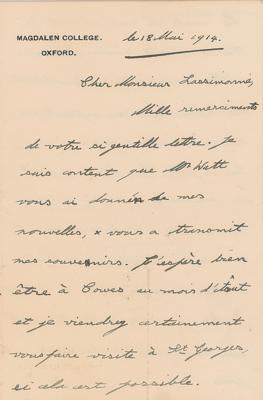 MAGDALEN COLLEGE, le 18 Mai 1914.
OXFORD.
Cher Monsieur
Mille remerciments
de votre si gentille lettre. Je
suis content que Mr Watt
vous ai donné de mes
nouvelles, & vous a transmit
mes souvenirs. J'espère bien
être à Cowes au mois d'août
et je viendrey certainement
vous faire visite à St Georges,
si ala est possible.